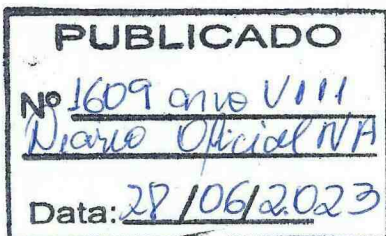 PUBLICADO
Nº 1609 ano VIII
Diário Oficial NA
Data: 28/06/2023